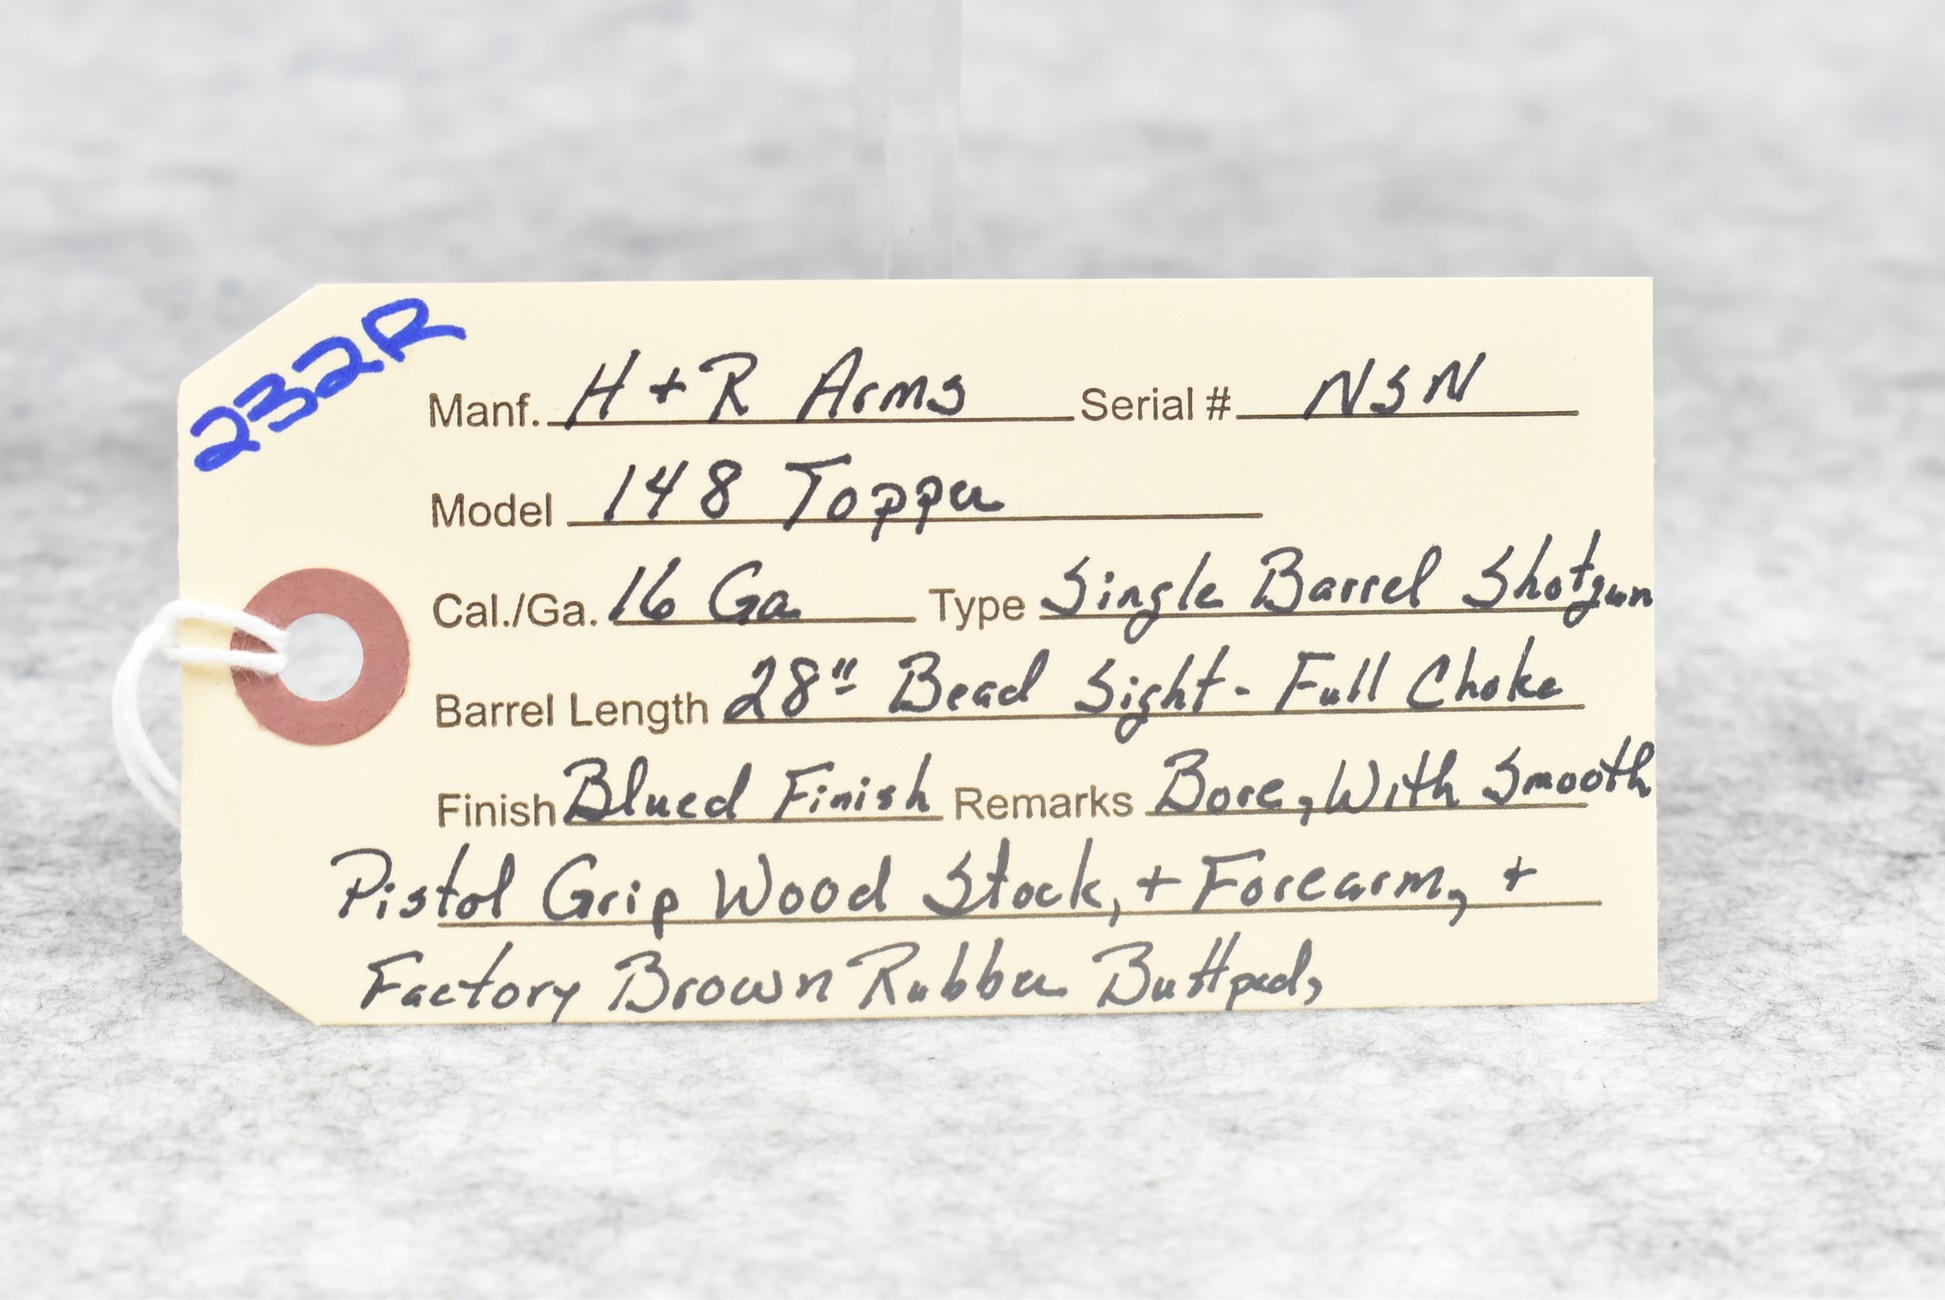 232R
Manf. H + R Arms Serial # NSN
Model 148 Topper
Cal./Ga. 16 Ga Type Single Barrel Shotgun
Barrel Length 28" Bead Sight - Full Choke
Finish Blued Finish Remarks Bore, With Smooth
Pistol Grip Wood Stock, + Forearm, +
Factory Brown Rubber Buttpad,